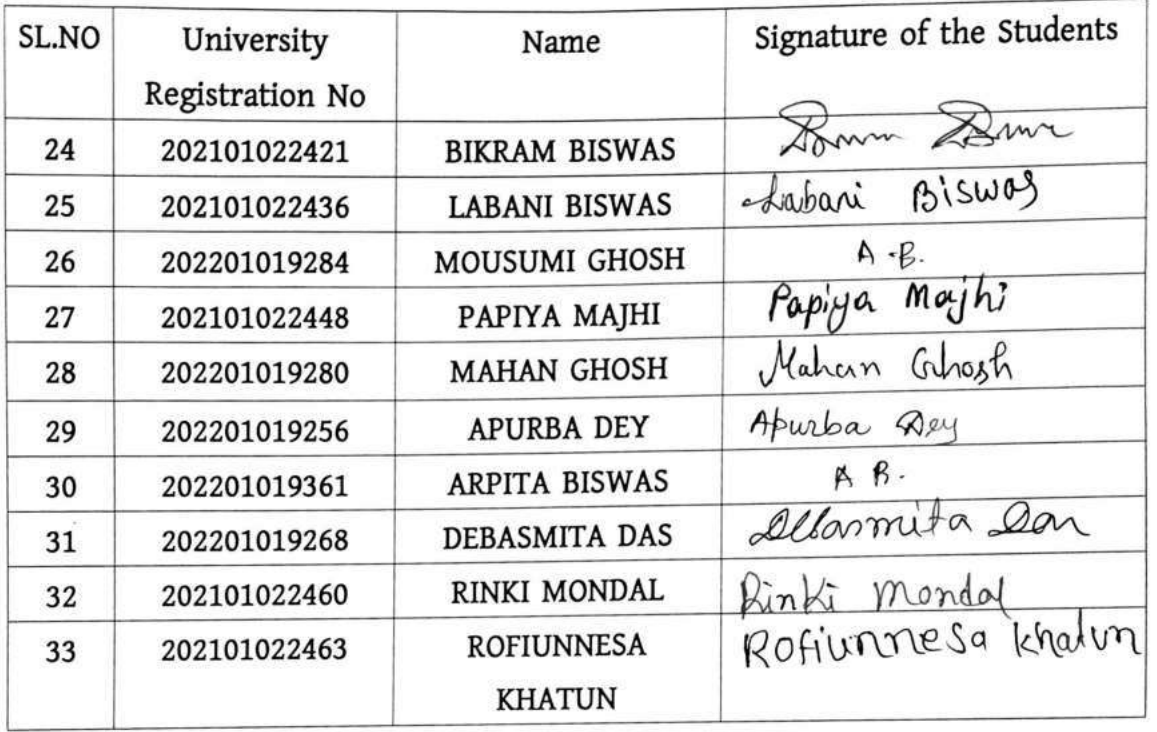 SL.NO University Name Signature of the Students
Registration No
24 202101022421 BIKRAM BISWAS
25 202101022436 LABANI BISWAS Labani Biswas
26 202201019284 MOUSUMI GHOSH A-B.
27 202101022448 PAPIYA MAJHI Papiya Majhi
28 202201019280 MAHAN GHOSH Mahan Ghosh
29 202201019256 APURBA DEY Apurba Dey
30 202201019361 ARPITA BISWAS A B.
31 202201019268 DEBASMITA DAS Debasmita Das
32 202101022460 RINKI MONDAL Rinki Mondal
33 202101022463 ROFIUNNESA Rofiunnesa Khatun
KHATUN